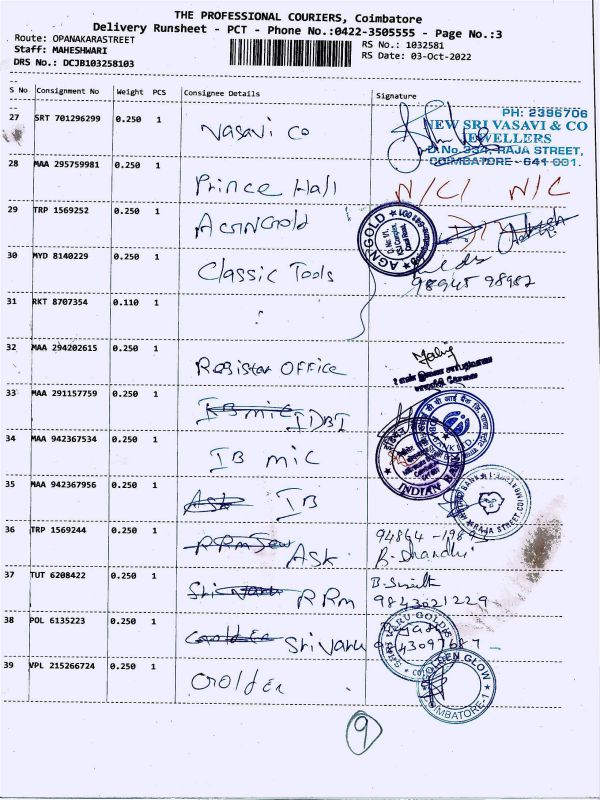 THE PROFESSIONAL COURIERS, Coimbatore
Delivery Runsheet - PCT - Phone No.:0422-3505555 - Page No.:3
Route: OPANAKARASTREET
RS No.: 1032581
Staff: MAHESHWARI
RS Date: 03-Oct-2022
DRS No.: DCJB103258103
S No Consignment No Weight PCS Consignee Details Signature
27 SRT 701296299 0.250 1 Vasavi Co
PH: 2396706
NEW SRI VASAVI & CO
JEWELLERS
D.No.334, RAJA STREET,
COIMBATORE - 641 001.
28 MAA 295759981 0.250 1 Prince Hall N/C1 N/C
29 TRP 1569252 0.250 1 AGNGold
AGN GOLD
30 MYD 8140229 0.250 1 Classic Tools
98945 98982
31 RKT 8707354 0.110 1
32 MAA 294202615 0.250 1 Register OFFice
33 MAA 291157759 0.250 1 IB mic IDBI
34 MAA 942367534 0.250 1 IB mic
INDIAN BANK
35 MAA 942367956 0.250 1 Ask IB
RAJA STREET
36 TRP 1569244 0.250 1 Ask
B. Dhandhi
37 TUT 6208422 0.250 1 RRm
9843021229
38 POL 6135223 0.250 1 Golden Srivaru
SHRI VARU GOLD
39 VPL 215266724 0.250 1 Golden
GOLDEN GLOW
COIMBATORE-1
9